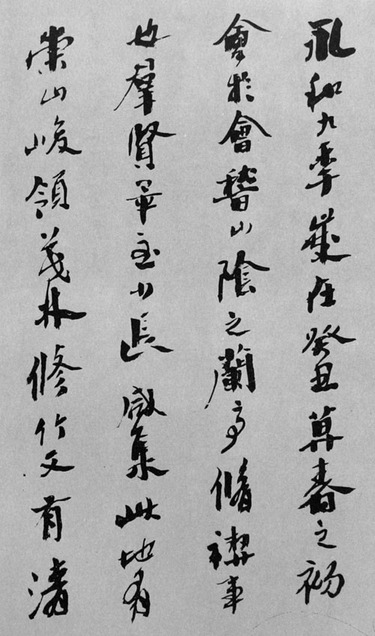 永和九年歲在癸丑暮春之初
會於會稽山陰之蘭亭脩禊事
也羣賢畢至少長咸集此地有
崇山峻領茂林脩竹又有清